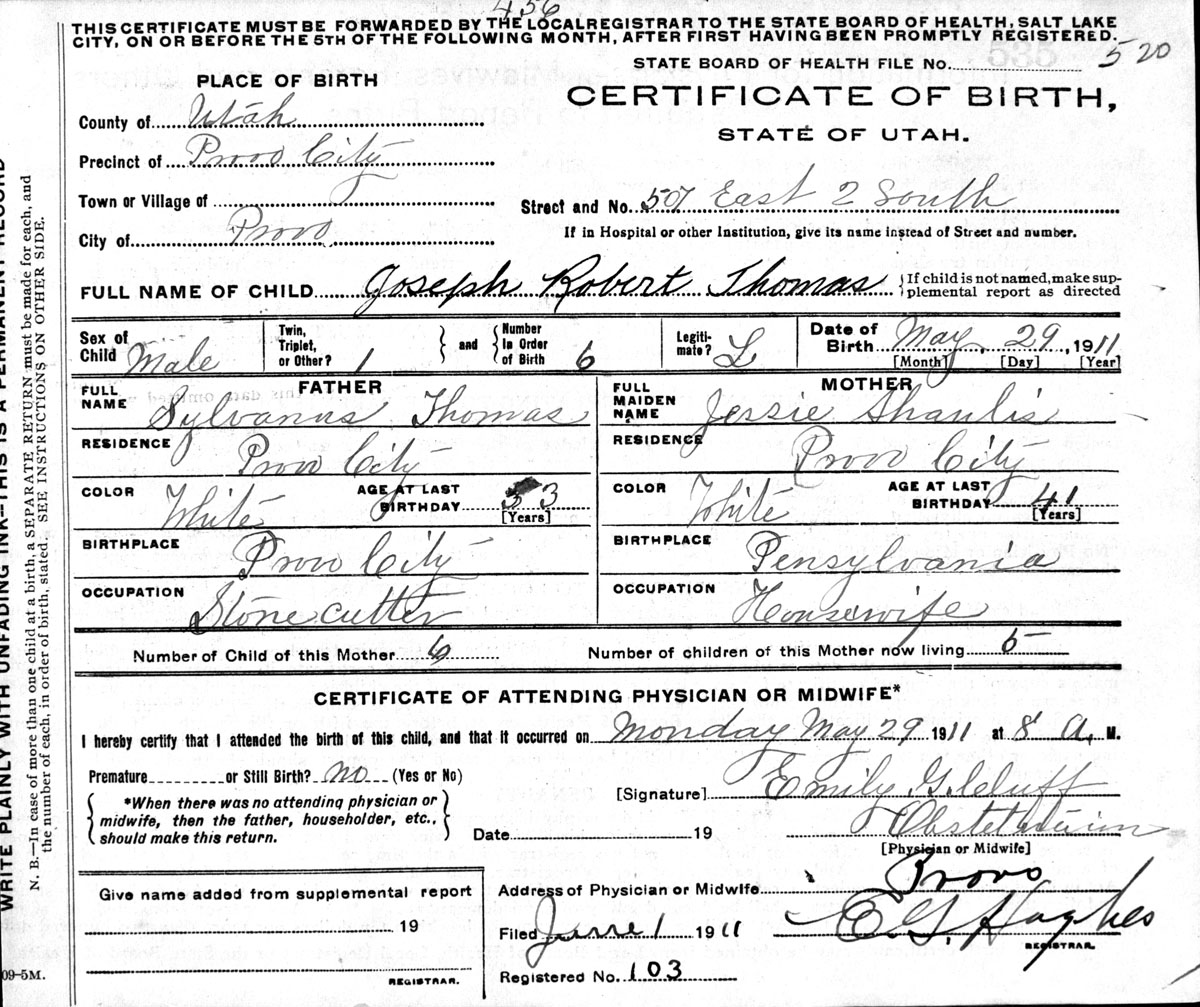 456
THIS CERTIFICATE MUST BE FORWARDED BY THE LOCAL REGISTRAR TO THE STATE BOARD OF HEALTH, SALT LAKE
CITY, ON OR BEFORE THE 5TH OF THE FOLLOWING MONTH, AFTER FIRST HAVING BEEN PROMPTLY REGISTERED.
STATE BOARD OF HEALTH FILE No. 520
PLACE OF BIRTH
CERTIFICATE OF BIRTH,
STATE OF UTAH.
County of Utah
Precinct of Provo City
Town or Village of
Street and No. 507 East 2 South
City of Provo
If in Hospital or other Institution, give its name instead of Street and number.
FULL NAME OF CHILD Joseph Robert Thomas {If child is not named, make sup-
plemental report as directed
Sex of Child Male
Twin, Triplet, or Other? 1 } and { Number In Order of Birth 6
Legiti-mate? L
Date of Birth May, 29, 1911
[Month] [Day] [Year]
FATHER
FULL NAME Sylvanus Thomas
RESIDENCE Provo City
COLOR White AGE AT LAST BIRTHDAY 53
[Years]
BIRTHPLACE Provo City
OCCUPATION Stone cutter
MOTHER
FULL MAIDEN NAME Jessie Shaulis
RESIDENCE Provo City
COLOR White AGE AT LAST BIRTHDAY 41
[Years]
BIRTHPLACE Pensylvania
OCCUPATION Housewife
Number of Child of this Mother 6 Number of children of this Mother now living 5
CERTIFICATE OF ATTENDING PHYSICIAN OR MIDWIFE*
I hereby certify that I attended the birth of this child, and that it occurred on Monday May 29 1911 at 8 A. M.
Premature or Still Birth? no (Yes or No)
{*When there was no attending physician or
midwife, then the father, householder, etc.,
should make this return.}
[Signature] Emily G. Cluff
Date 19 Obstetrician
[Physician or Midwife]
Give name added from supplemental report
19
REGISTRAR.
Address of Physician or Midwife Provo
Filed June 1 1911 E G Hughes
REGISTRAR.
Registered No. 103
WRITE PLAINLY WITH UNFADING INK--THIS IS A PERMANENT RECORD
N. B.—In case of more than one child at a birth, a SEPARATE RETURN must be made for each, and
the number of each, in order of birth, stated. SEE INSTRUCTIONS ON OTHER SIDE.
09-5M.